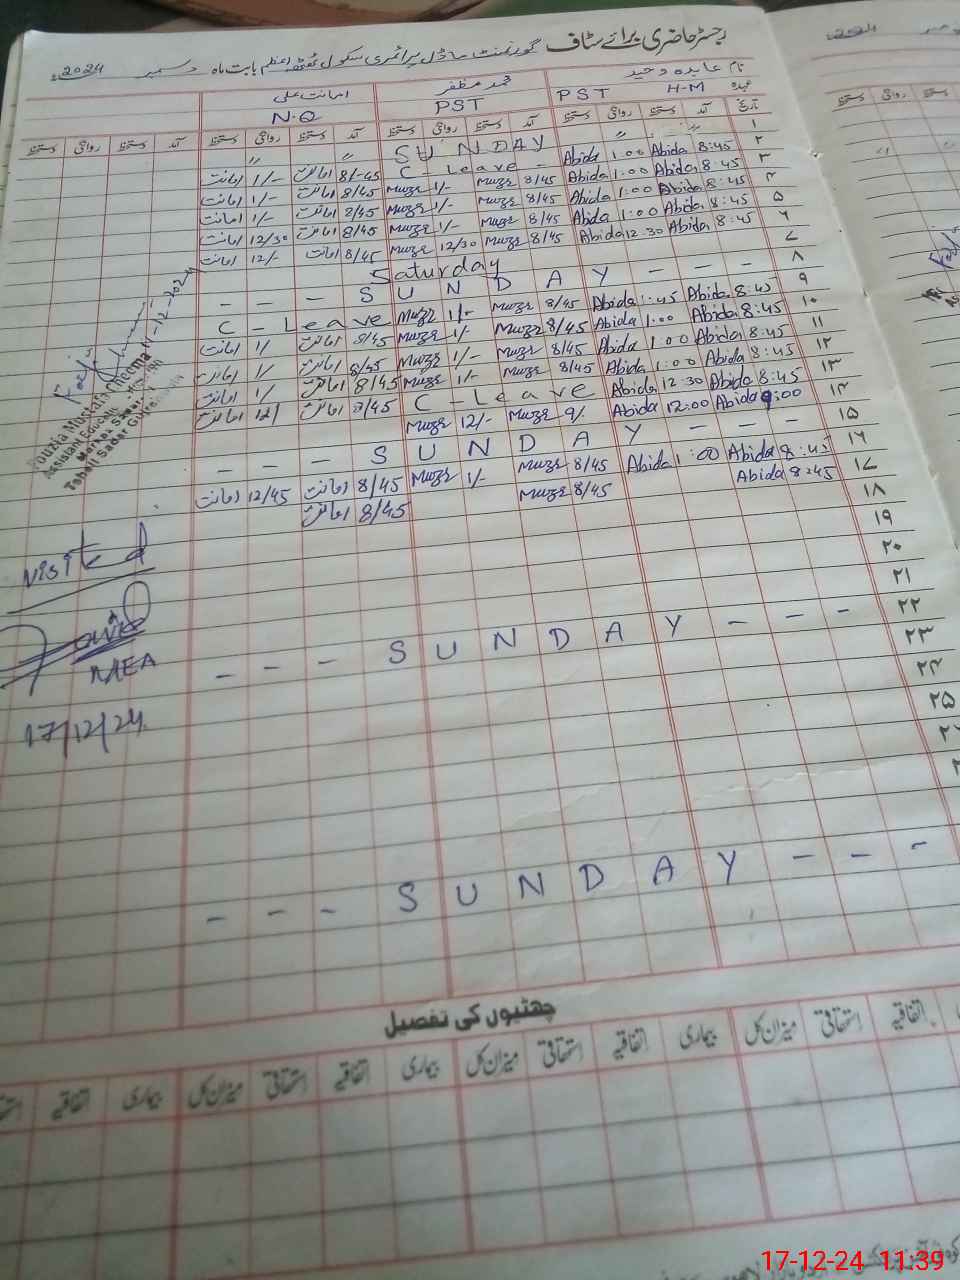 رجسٹر حاضری برائے سٹاف گورنمنٹ ماڈل پرائمری سکول ٹھٹھہ اعظم بابت ماہ دسمبر 2024ء
نام عابدہ وحید محمد مظفر امانت علی
عہدہ H-M PST PST N-Q
تاریخ آمد دستخط روانگی دستخط آمد دستخط روانگی دستخط آمد دستخط روانگی دستخط آمد دستخط روانگی دستخط
۱ SUNDAY
۲ 8:45 Abida 1:00 Abida C-Leave 8/-45 امانت 1/- امانت
۳ 8:45 Abida 1:00 Abida 8/45 Muzr 1/- Muzr 8/45 امانت 1/- امانت
۴ 8:45 Abida 1:00 Abida 8/45 Muzr 1/- Muzr 8/45 امانت 1/- امانت
۵ 8:45 Abida 1:00 Abida 8/45 Muzr 1/- Muzr 8/45 امانت 12/30 امانت
۶ 8:45 Abida 12:30 Abida 8/45 Muzr 12/30 Muzr 8/45 امانت 12/- امانت
۷ Saturday
۸ - - - SUNDAY - - -
۹ 8:45 Abida 1:45 Abida 8/45 Muzr 1/- Muzr C-Leave
۱۰ 8:45 Abida 1:00 Abida 8/45 Muzr 1/- Muzr 8/45 امانت 1/ امانت
۱۱ 8:45 Abida 1:00 Abida 8/45 Muzr 1/- Muzr 8/45 امانت 1/ امانت
۱۲ 8:45 Abida 1:00 Abida 8/45 Muzr 1/- Muzr 8/45 امانت 1/ امانت
۱۳ 8:45 Abida 12:30 Abida C-Leave 8/45 امانت 12/ امانت
۱۴ 9:00 Abida 12:00 Abida 9/. Muzr 12/- Muzr
۱۵ - - - SUNDAY - - -
۱۶ 8:45 Abida 1:00 Abida 8/45 Muzr 1/- Muzr 8/45 امانت 12/45 امانت
۱۷ 8:45 Abida 8/45 Muzr 8/45 امانت
۱۸
۱۹
۲۰
۲۱
۲۲ - - - SUNDAY - - -
۲۳
۲۴
۲۵
- - - SUNDAY - - -
11-12-2024
Mustafa Cheema
Visited
MEA
17/12/24
چھٹیوں کی تفصیل
اتفاقیہ استحقاقی میزان کل بیماری اتفاقیہ استحقاقی میزان کل بیماری اتفاقیہ استحقاقی میزان کل بیماری اتفاقیہ
2024
17-12-24 11:39